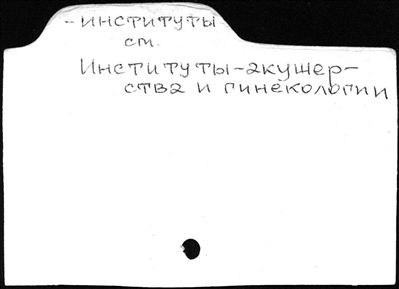 - институты
см.
Институты-акушер-
ства и гинекологии